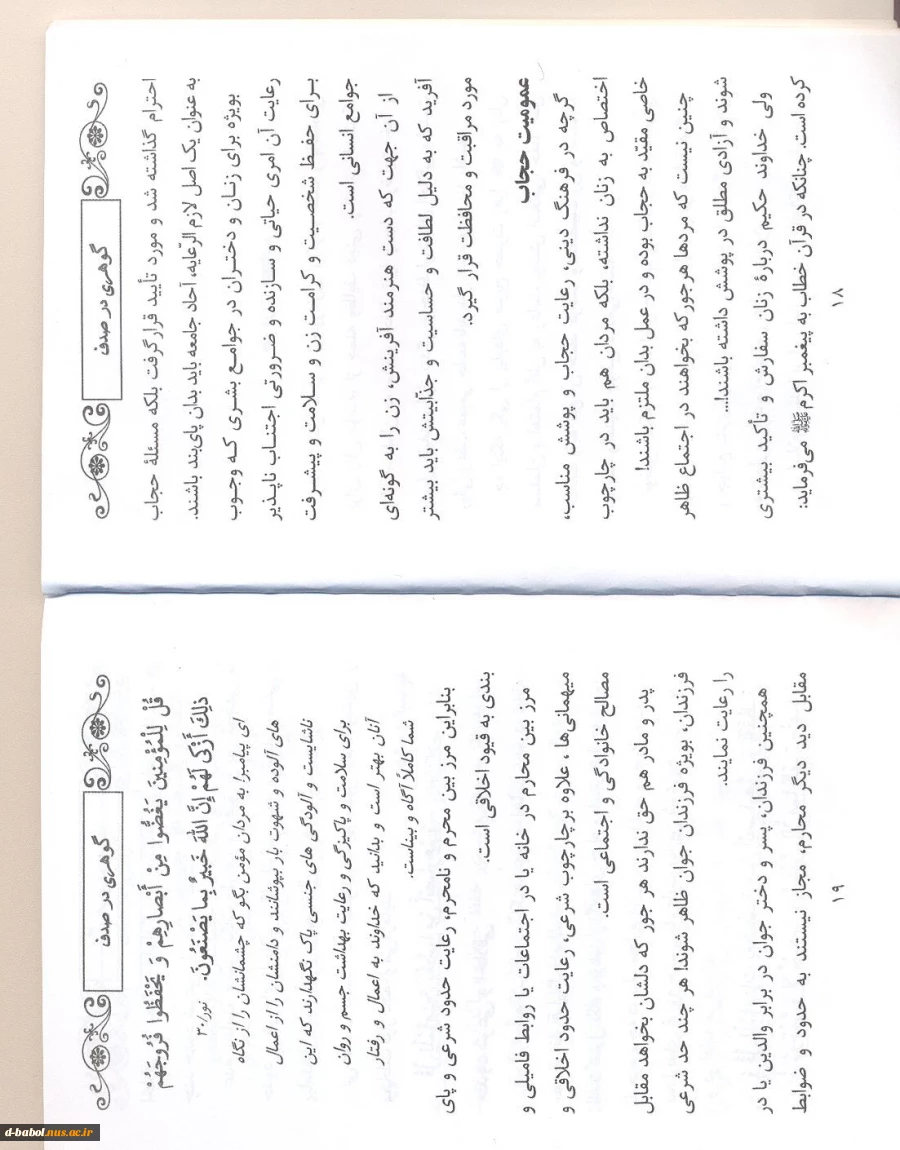 گوهری در صدف
احترام گذاشته شد و مورد تأیید قرار گرفت بلکه مسئلهٔ حجاب
به عنوان یک اصل لازم الرّعایه، آحاد جامعه باید بدان پای‌بند باشند.
بویژه برای زنان و دختران در جوامع بشری که وجوب
رعایت آن امری حیاتی و سازنده و ضرورتی اجتناب ناپذیر
برای حفظ شخصیت و کرامت زن و سلامت و پیشرفت
جوامع انسانی است.
از آن جهت که دست هنرمند آفرینش، زن را به گونه‌ای
آفرید که به دلیل لطافت و حساسیت و جذّابیتش باید بیشتر
مورد مراقبت و محافظت قرار گیرد.
عمومیت حجاب
گرچه در فرهنگ دینی، رعایت حجاب و پوشش مناسب،
اختصاص به زنان نداشته، بلکه مردان هم باید در چارچوب
خاصی مقید به حجاب بوده و در عمل بدان ملتزم باشند!
چنین نیست که مردها هر جور که بخواهند در اجتماع ظاهر
شوند و آزادی مطلق در پوشش داشته باشند!...
ولی خداوند حکیم دربارهٔ زنان سفارش و تأکید بیشتری
کرده است. چنانکه در قرآن خطاب به پیغمبر اکرم ﷺ می‌فرماید:
۱۸
گوهری در صدف
قُلْ لِلْمُؤْمِنِينَ يَغُضُّوا مِنْ أَبْصارِهِمْ وَ يَحْفَظُوا فُرُوجَهُمْ
ذلِكَ أَزْكى لَهُمْ إِنَّ اللهَ خَبِيرٌ بِما يَصْنَعُونَ. نور/۳۰
ای پیامبر! به مردان مؤمن بگو که چشمانشان را از نگاه
های آلوده و شهوت بار بپوشانند و دامنشان را از اعمال
ناشایست و آلودگی های جنسی پاک نگهدارند که این
برای سلامت و پاکیزگی و رعایت بهداشت جسم و روان
آنان بهتر است و بدانید که خداوند به اعمال و رفتار
شما کاملاً آگاه و بیناست.
بنابراین مرز بین محرم و نامحرم، رعایت حدود شرعی و پای
بندی به قیود اخلاقی است.
مرز بین محارم در خانه یا در اجتماعات یا روابط فامیلی و
میهمانی‌ها، علاوه بر چارچوب شرعی، رعایت حدود اخلاقی و
مصالح خانوادگی و اجتماعی است.
پدر و مادر هم حق ندارند هر جور که دلشان بخواهد مقابل
فرزندان، بویژه فرزندان جوان ظاهر شوند! هر چند حد شرعی
را رعایت نمایند.
همچنین فرزندان، پسر و دختر جوان در برابر والدین یا در
مقابل دید دیگر محارم، مجاز نیستند به حدود و ضوابط
۱۹
d-babol.nus.ac.ir